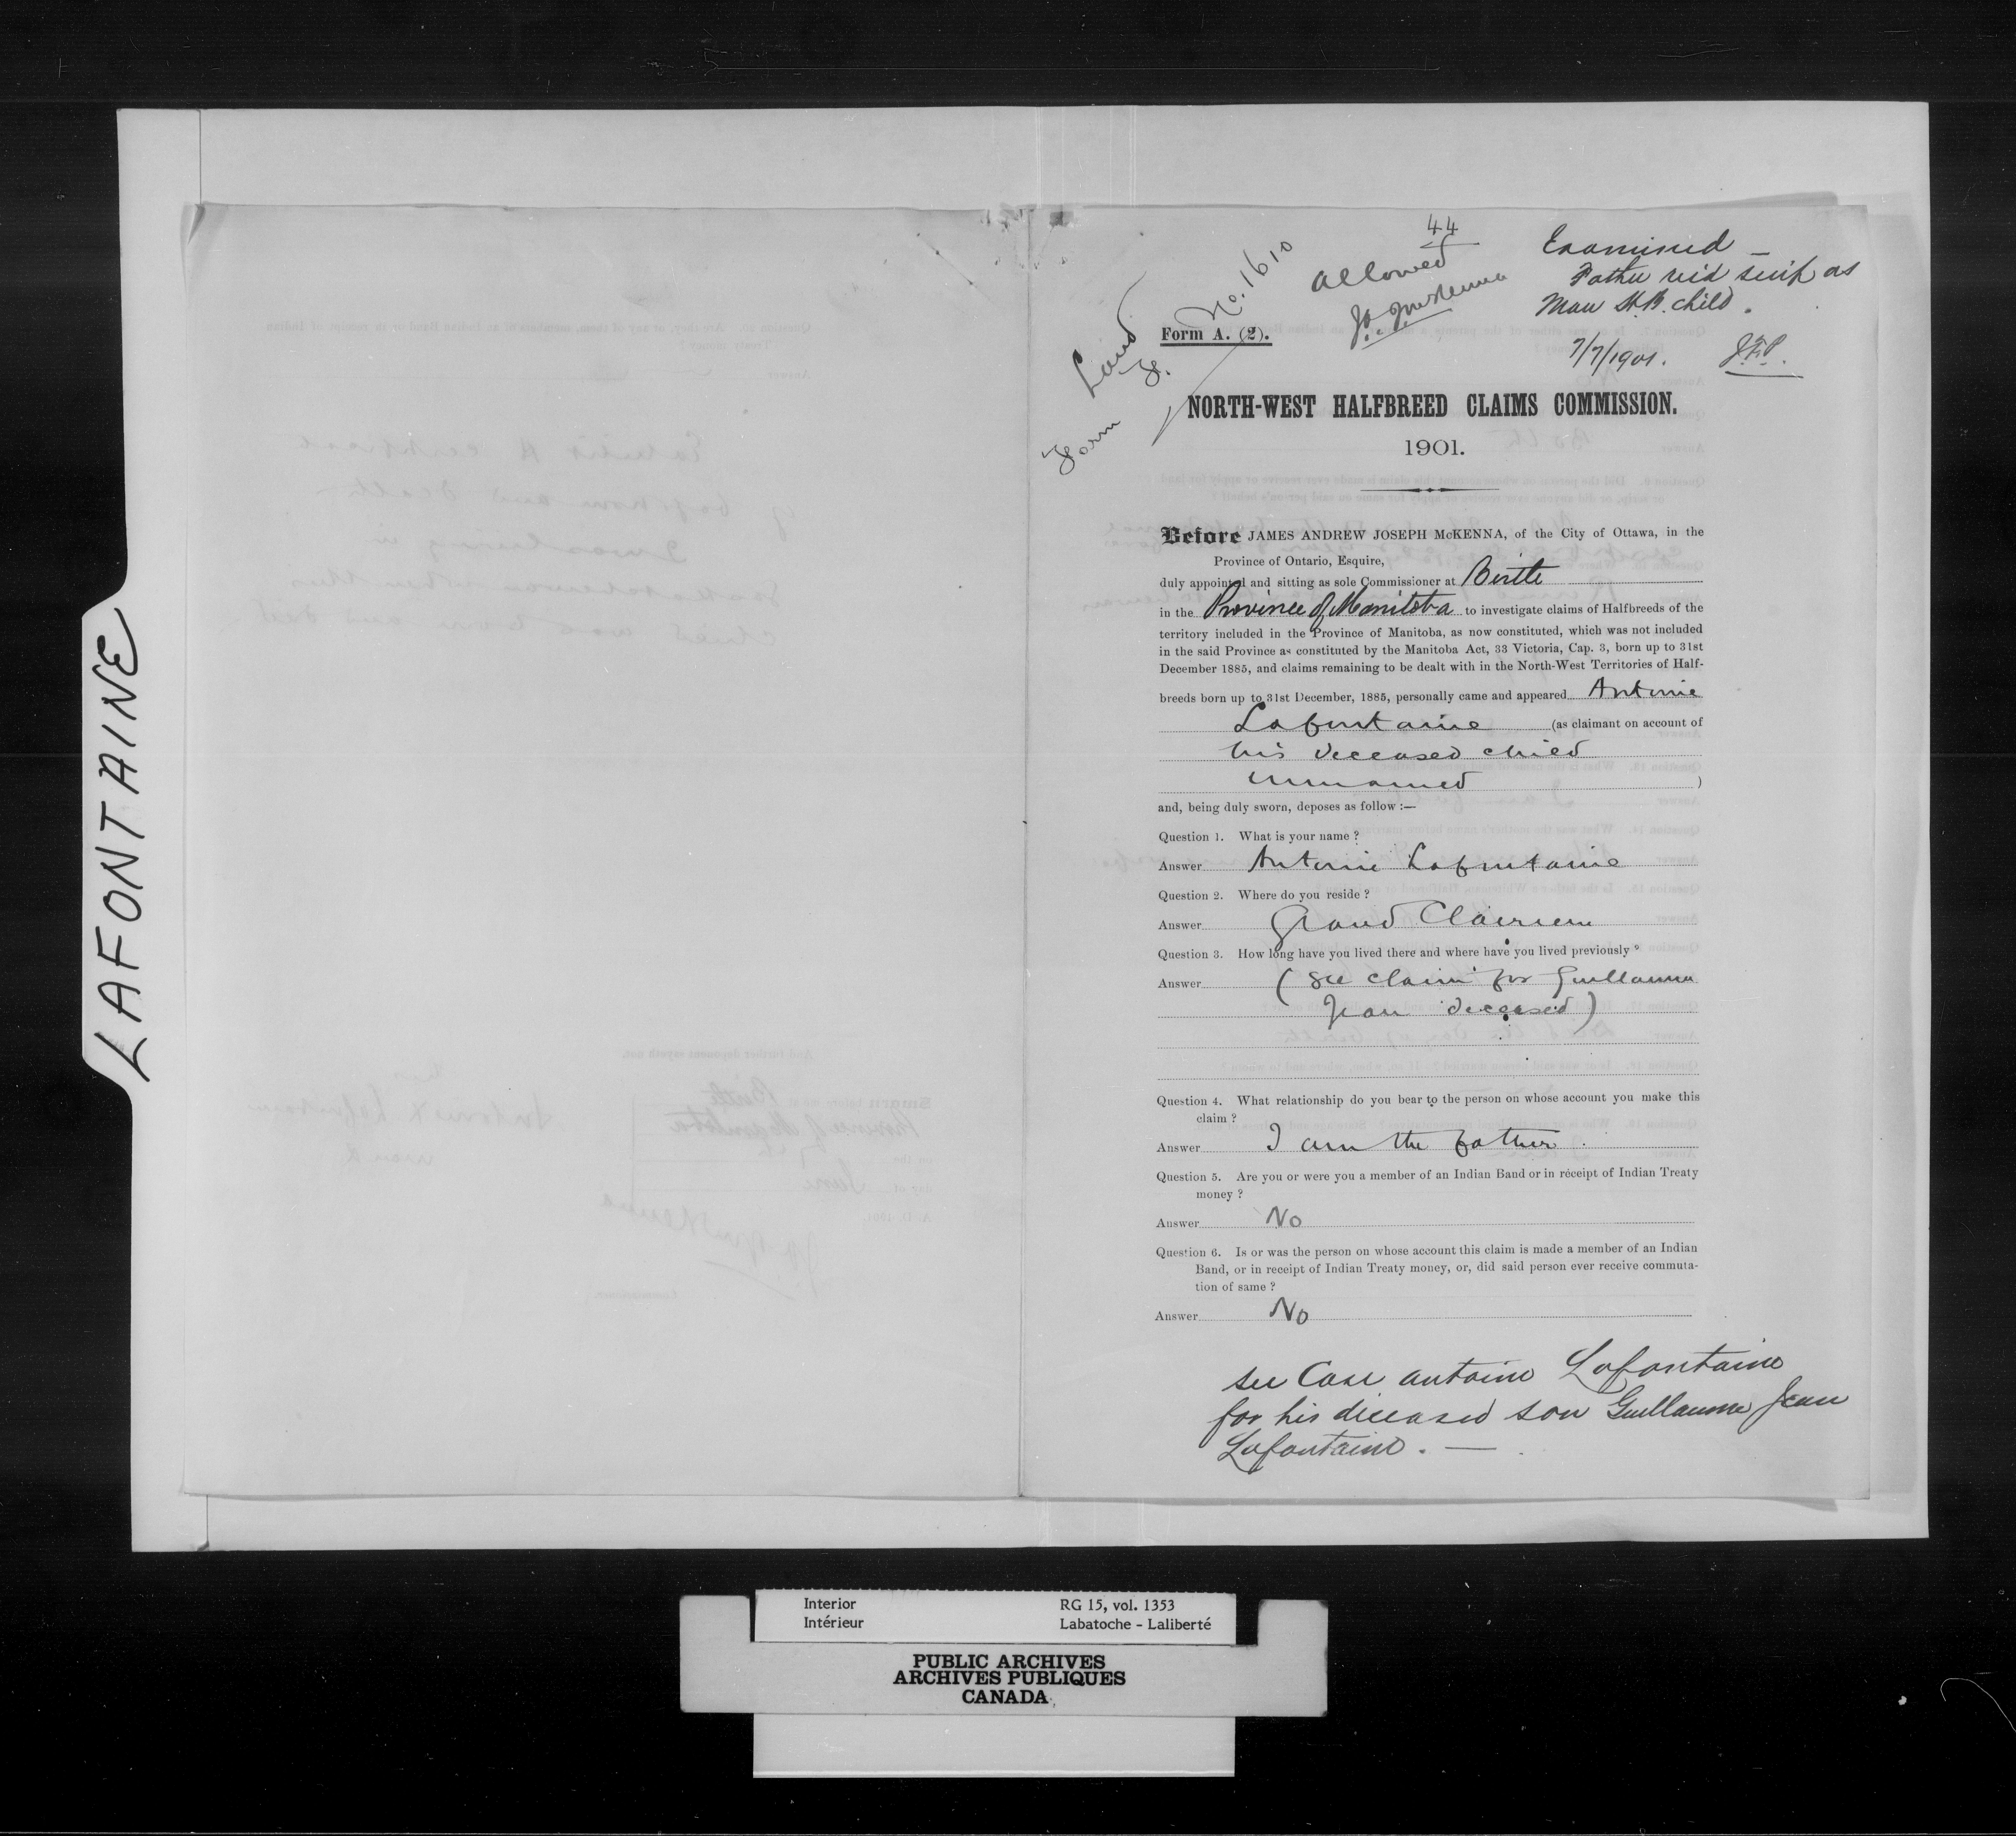 LAFONTAINE
44
Allowed
J.A.J. McKenna
Examined —
Father rec'd scrip as
Man H.B. child.
7/7/1901. J.F.P.
Land
Form F. No. 1610
Form A. (2).
NORTH-WEST HALFBREED CLAIMS COMMISSION.
1901.
Before JAMES ANDREW JOSEPH McKENNA, of the City of Ottawa, in the
Province of Ontario, Esquire,
duly appointed and sitting as sole Commissioner at Birtle
in the Province of Manitoba to investigate claims of Halfbreeds of the
territory included in the Province of Manitoba, as now constituted, which was not included
in the said Province as constituted by the Manitoba Act, 33 Victoria, Cap. 3, born up to 31st
December 1885, and claims remaining to be dealt with in the North-West Territories of Half-
breeds born up to 31st December, 1885, personally came and appeared Antoine
Lafontaine (as claimant on account of
his deceased child
unnamed )
and, being duly sworn, deposes as follow :—
Question 1. What is your name ?
Answer Antoine Lafontaine
Question 2. Where do you reside ?
Answer Grand Clairiere
Question 3. How long have you lived there and where have you lived previously ?
Answer (See claim for Guillaume
Jean deceased)
Question 4. What relationship do you bear to the person on whose account you make this
claim ?
Answer I am the father.
Question 5. Are you or were you a member of an Indian Band or in receipt of Indian Treaty
money ?
Answer No
Question 6. Is or was the person on whose account this claim is made a member of an Indian
Band, or in receipt of Indian Treaty money, or, did said person ever receive commuta-
tion of same ?
Answer No
see Case antoine Lafontaine
for his deceased son Guillaume Jean
Lafontaine. —
Interior RG 15, vol. 1353
Intérieur Labatoche - Laliberté
PUBLIC ARCHIVES
ARCHIVES PUBLIQUES
CANADA